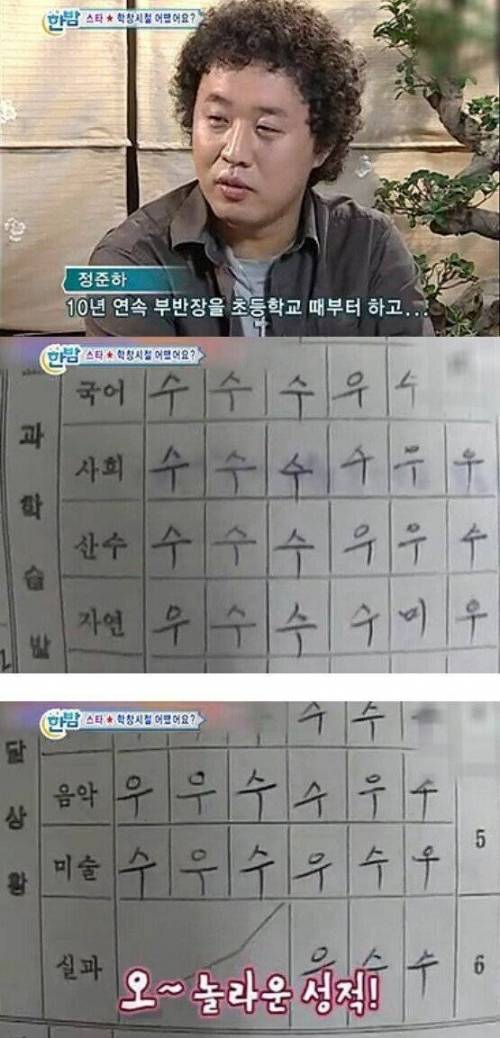 한밤 스타★학창시절 어땠어요?
정준하
10년 연속 부반장을 초등학교 때부터 하고...
한밤 스타★학창시절 어땠어요?
과학습발
국어 수 수 수 우 수
사회 수 수 수 수 우 우
산수 수 수 수 우 우 수
자연 우 수 수 수 미 우
한밤 스타★학창시절 어땠어요?
달상황
수 수
음악 우 우 수 수 우 수
5
미술 수 우 수 우 수 우
실과 우 수 수 6
오~ 놀라운 성적!